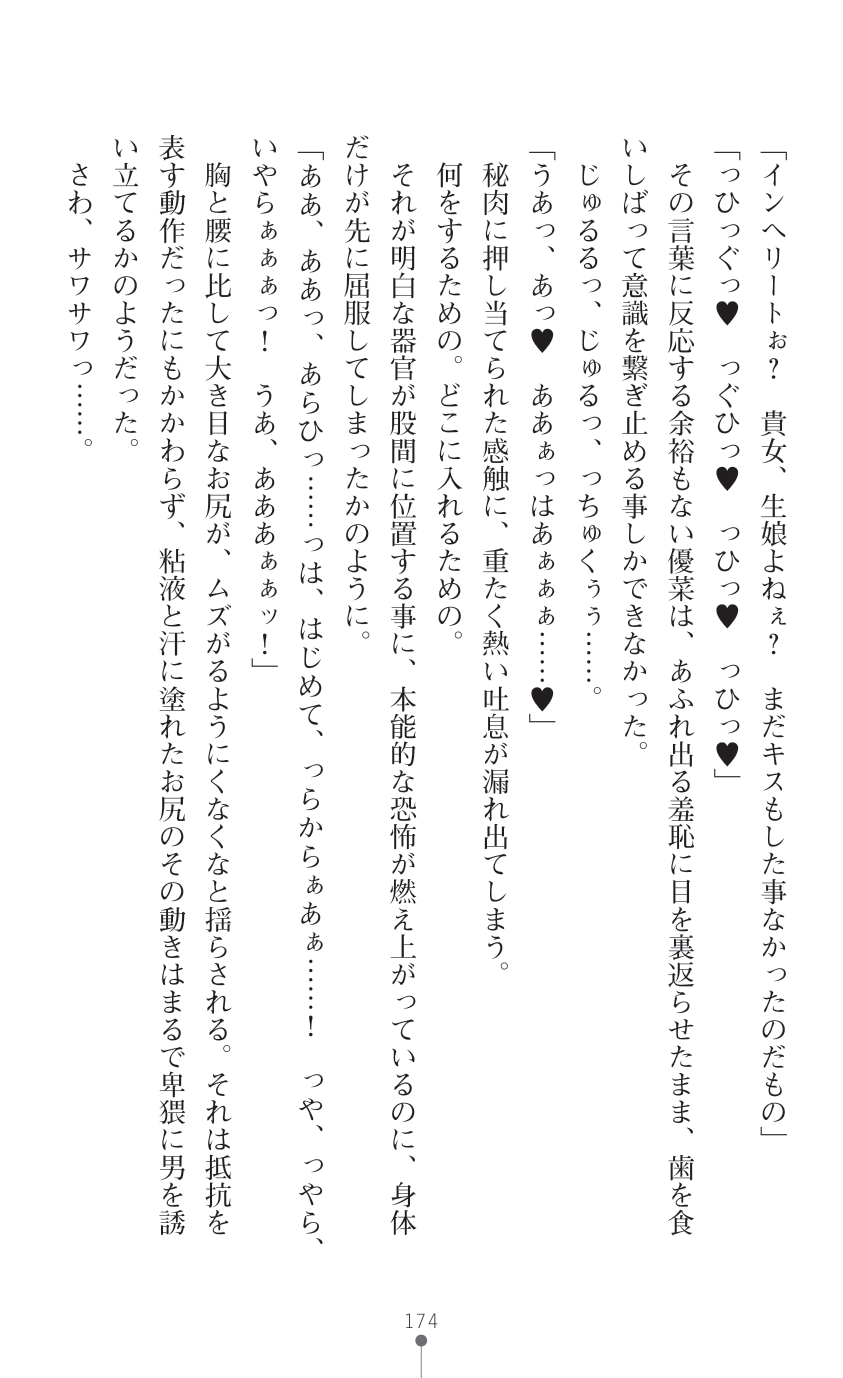 「インヘリートぉ？　貴女、生娘よねぇ？　まだキスもした事なかったのだもの」
「っひっぐっ♥　っぐひっ♥　っひっ♥　っひっ♥」
　その言葉に反応する余裕もない優菜は、あふれ出る羞恥に目を裏返らせたまま、歯を食
いしばって意識を繋ぎ止める事しかできなかった。
　じゅるるっ、じゅるっ、っちゅくぅぅ……。
「うあっ、あっ♥　ああぁっはあぁぁぁ……♥」
　秘肉に押し当てられた感触に、重たく熱い吐息が漏れ出てしまう。
　何をするための。どこに入れるための。
　それが明白な器官が股間に位置する事に、本能的な恐怖が燃え上がっているのに、身体
だけが先に屈服してしまったかのように。
「ああ、ああっ、あらひっ……っは、はじめて、っらからぁあぁ……！　っや、っやら、
いやらぁぁぁっ！　うあ、あああぁぁッ！」
　胸と腰に比して大き目なお尻が、ムズがるようにくなくなと揺らされる。それは抵抗を
表す動作だったにもかかわらず、粘液と汗に塗れたお尻のその動きはまるで卑猥に男を誘
い立てるかのようだった。
　さわ、サワサワっ……。
174